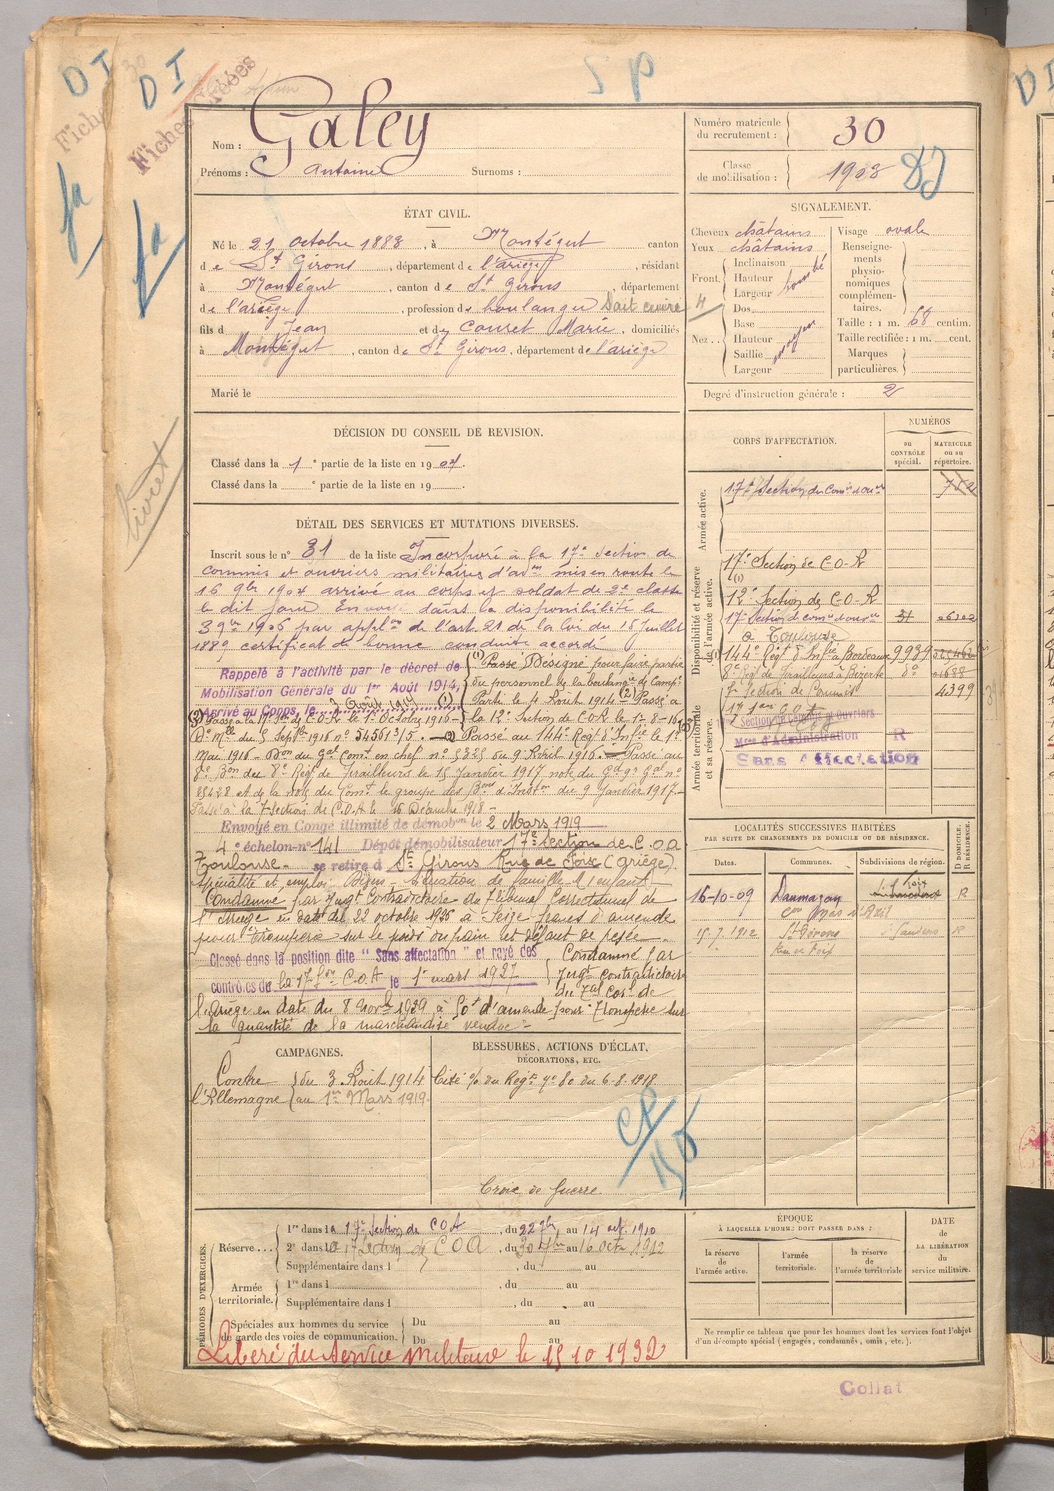 D I
D I
S P
Fiches
Fiches Créées
Nom : Galey
Prénoms : Antoine Surnoms :
Numéro matricule du recrutement : 30
Classe de mobilisation : 1908
ÉTAT CIVIL.
Né le 21 octobre 1883, à Montégut canton
de St Girons, département de l'ariège, résidant
à Montégut, canton de St Girons, département
de l'ariège, profession de boulanger Sait cuire
fils de Jean et de Couret Marie, domiciliés
à Montégut, canton de St Girons, département de l'ariège
Marié le
SIGNALEMENT.
Cheveux châtains
Yeux châtains
Front. Inclinaison
Hauteur
Largeur
Nez.. Dos
Base
Hauteur
Saillie
Largeur
moyen
Visage ovale
Renseignements physionomiques complémentaires.
Taille : 1 m. 68 centim.
Taille rectifiée : 1 m. cent.
Marques particulières.
Degré d'instruction générale : 2
DÉCISION DU CONSEIL DE REVISION.
Classé dans la 1e partie de la liste en 1904.
Classé dans la e partie de la liste en 19 .
livret
DÉTAIL DES SERVICES ET MUTATIONS DIVERSES.
Inscrit sous le n° 81 de la liste Incorporé à la 17e Section de
commis et ouvriers militaires d'adon mis en route le
16 9bre 1904 arrivé au corps et soldat de 2e classe
le dit jour Envoyé dans la disponibilité le
39bre 1906 par applon de l'art. 21 de la loi du 15 juillet
1889 certificat de bonne conduite accordé
Rappelé à l'activité par le décret de
Mobilisation Générale du 1er Août 1914,
Arrivé au Corps, le 3 Août 1914 (1)
(1) Passé Désigné pour faire partie
du personnel de la boulangie de Campe
Partie le 4 Août 1914 (2) Passé à
la 12e Section de COA le 1-8-16
(3) Passé à la 17e Son de C.O.A le 1er Octobre 1916
Don Mlle du 5 Septbre 1916 n° 54561 3/5. Passé au 144e Régt d'Infie le 1er
Mai 1916 - Don du Gal Comt en chef n° 5325 du 9 Avril 1916. Passé au
8e Bon du 8e Régt de Tirailleurs le 15 Janvier 1917 note du Gd Qr Gal n°
25428 et de la note du Comt le groupe des Bons d'Inston du 9 Janvier 1917
Passé à la 7 Section de C.O.A le 16 Décembre 1918 -
Envoyé en Congé illimité de démobon le 2 Mars 1919
4e échelon n° 141 Dépôt démobilisateur 17e Section de C.O.A
Toulouse - se retire à St Girons Rue de Foix (Ariège).
Spécialité et emploi Divers - Situation de famille 1 enfant
Condamné par Jugt Contradictoire du Tribunal Correctionnel de
l'Ariège en date du 22 octobre 1926 à Seize francs d'amende
pour Tromperie sur le poids du pain et défaut de pesée
Classé dans la position dite " Sans affectation " et rayé des
contrôles de la 17e Son C.O.A le 1er mars 1927
Condamné par
Jugt contradictoire
du Tal Corl de
l'Ariège en date du 8 Novbre 1929 à 50f d'amende pour Tromperie sur
la quantité de la marchandise vendue -
CORPS D'AFFECTATION.
NUMÉROS
au CONTRÔLE spécial.
MATRICULE ou au répertoire.
Armée active.
17e Section de Comis et ouvers
Disponibilité et réserve de l'armée active.
17e Section de C-O-A
12e Section de C-O-A
17e Section de comis et ouers 31
à Toulouse
144e Régt d'Infie à Bordeaux 9939
8e Régt de Tirailleurs à Bizerte do
7e Section de Commis 4399
Armée territoriale et sa réserve.
Section de Commis et Ouvriers
Mres d'Administration R
Sans Affectation
LOCALITÉS SUCCESSIVES HABITÉES
PAR SUITE DE CHANGEMENTS DE DOMICILE OU DE RÉSIDENCE.
Dates. Communes. Subdivisions de région. D DOMICILE. R RÉSIDENCE.
16-10-09 Daumazan Foix R
Con Mas d'Azil
15.7.1912 St Girons St Gaudens R
Rue de Foix
CAMPAGNES.
Contre l'Allemagne du 3 Août 1914
au 1er Mars 1919.
BLESSURES, ACTIONS D'ÉCLAT,
DÉCORATIONS, ETC.
Cité o/ du Régt n° 80 du 6-8-1918.
Croix de Guerre.
PÉRIODES D'EXERCICES.
Réserve... 1re dans la 17e Section de COA, du 22 7bre au 14 oct. 1910
2e dans la 17 Section de COA, du 30 7bre au 16 Octe 1912
Supplémentaire dans l , du au
Armée territoriale. 1re dans l , du au
Supplémentaire dans l , du au
Spéciales aux hommes du service de garde des voies de communication. Du au
Du au
Libéré du service militaire le 15 10 1932
ÉPOQUE
À LAQUELLE L'HOMME DOIT PASSER DANS :
la réserve de l'armée active.
l'armée territoriale.
la réserve de l'armée territoriale
DATE DE LA LIBÉRATION du service militaire.
Ne remplir ce tableau que pour les hommes dont les services font l'objet
d'un décompte spécial (engagés, condamnés, omis, etc.)
Collat